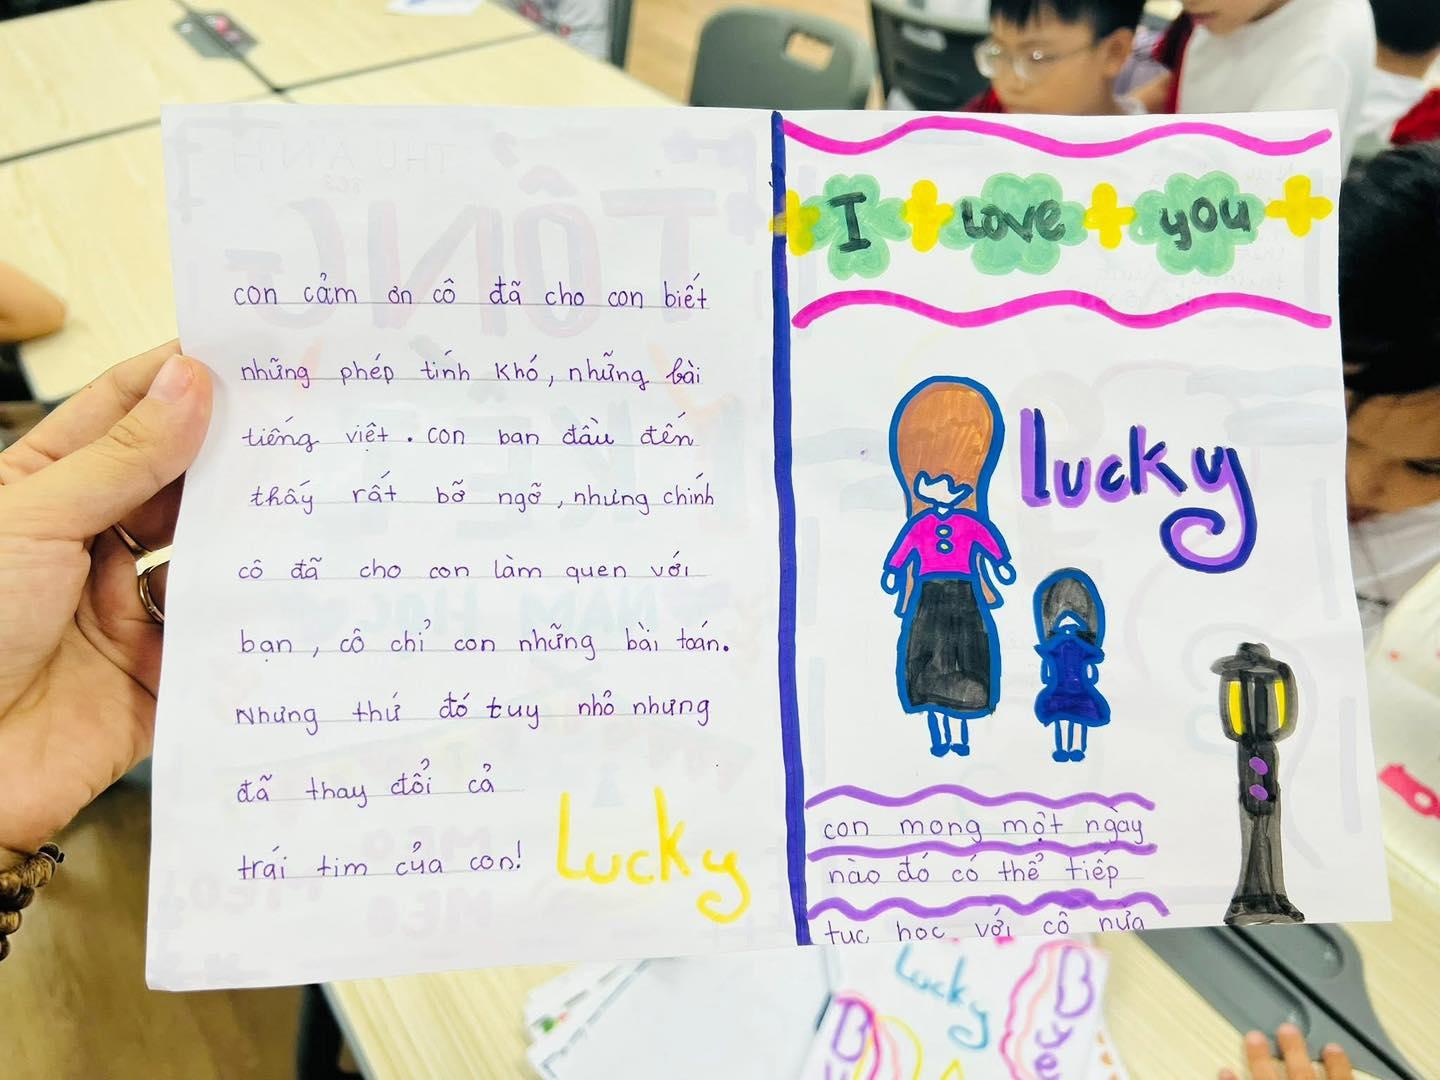 con cảm ơn cô đã cho con biết
những phép tính khó, những bài
tiếng việt. con ban đầu đến
thấy rất bỡ ngỡ, nhưng chính
cô đã cho con làm quen với
bạn, cô chỉ con những bài toán.
Nhưng thứ đó tuy nhỏ nhưng
đã thay đổi cả
trái tim của con!
Lucky
I Love you
Lucky
con mong một ngày
nào đó có thể tiếp
tục học với cô nữa
Lucky
Bye